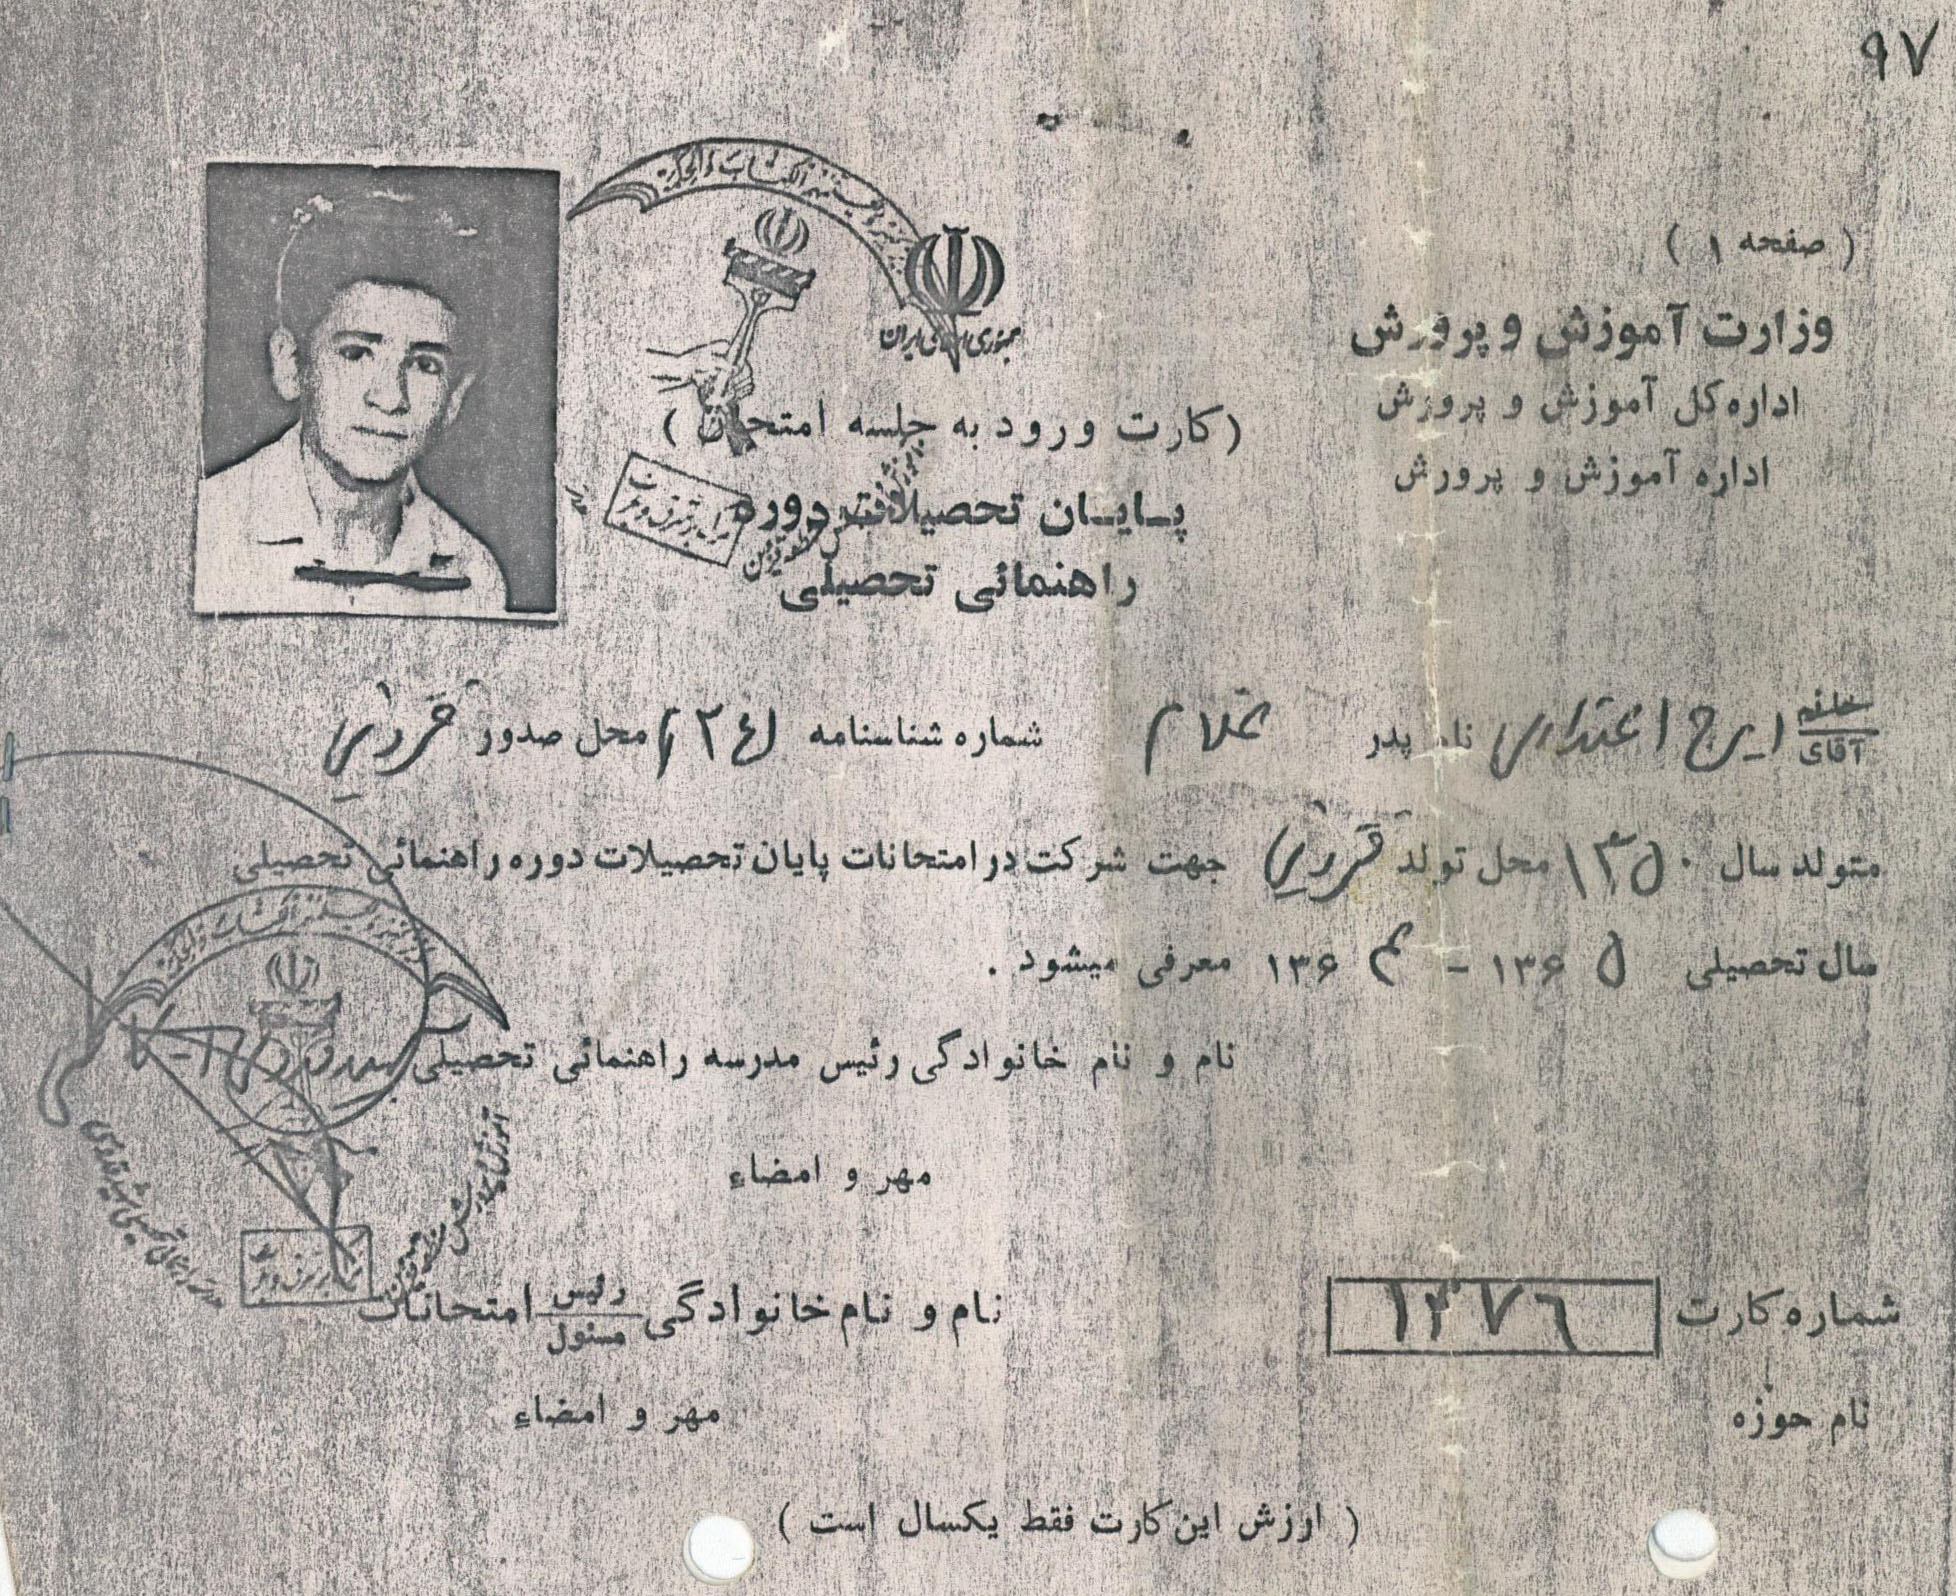 ۹۷
( صفحه ۱ )
جمهوری اسلامی ایران
وزارت آموزش و پرورش
اداره کل آموزش و پرورش
اداره آموزش و پرورش
(کارت ورود به جلسه امتحان )
پایان تحصیلات دوره
راهنمائی تحصیلی
خانم
آقای ایرج اعتدادی نام پدر غلام شماره شناسنامه محل صدور قزوین
متولد سال ۱۳۵۰ محل تولد قزوین جهت شرکت در امتحانات پایان تحصیلات دوره راهنمائی تحصیلی
سال تحصیلی ۱۳۶۵ - ۱۳۶۴ معرفی میشود .
نام و نام خانوادگی رئیس مدرسه راهنمائی تحصیلی
مهر و امضاء
شماره کارت ۱۳۷۶
نام و نام خانوادگی رئیس
مسئول امتحانات
نام حوزه
مهر و امضاء
( ارزش این کارت فقط یکسال است )